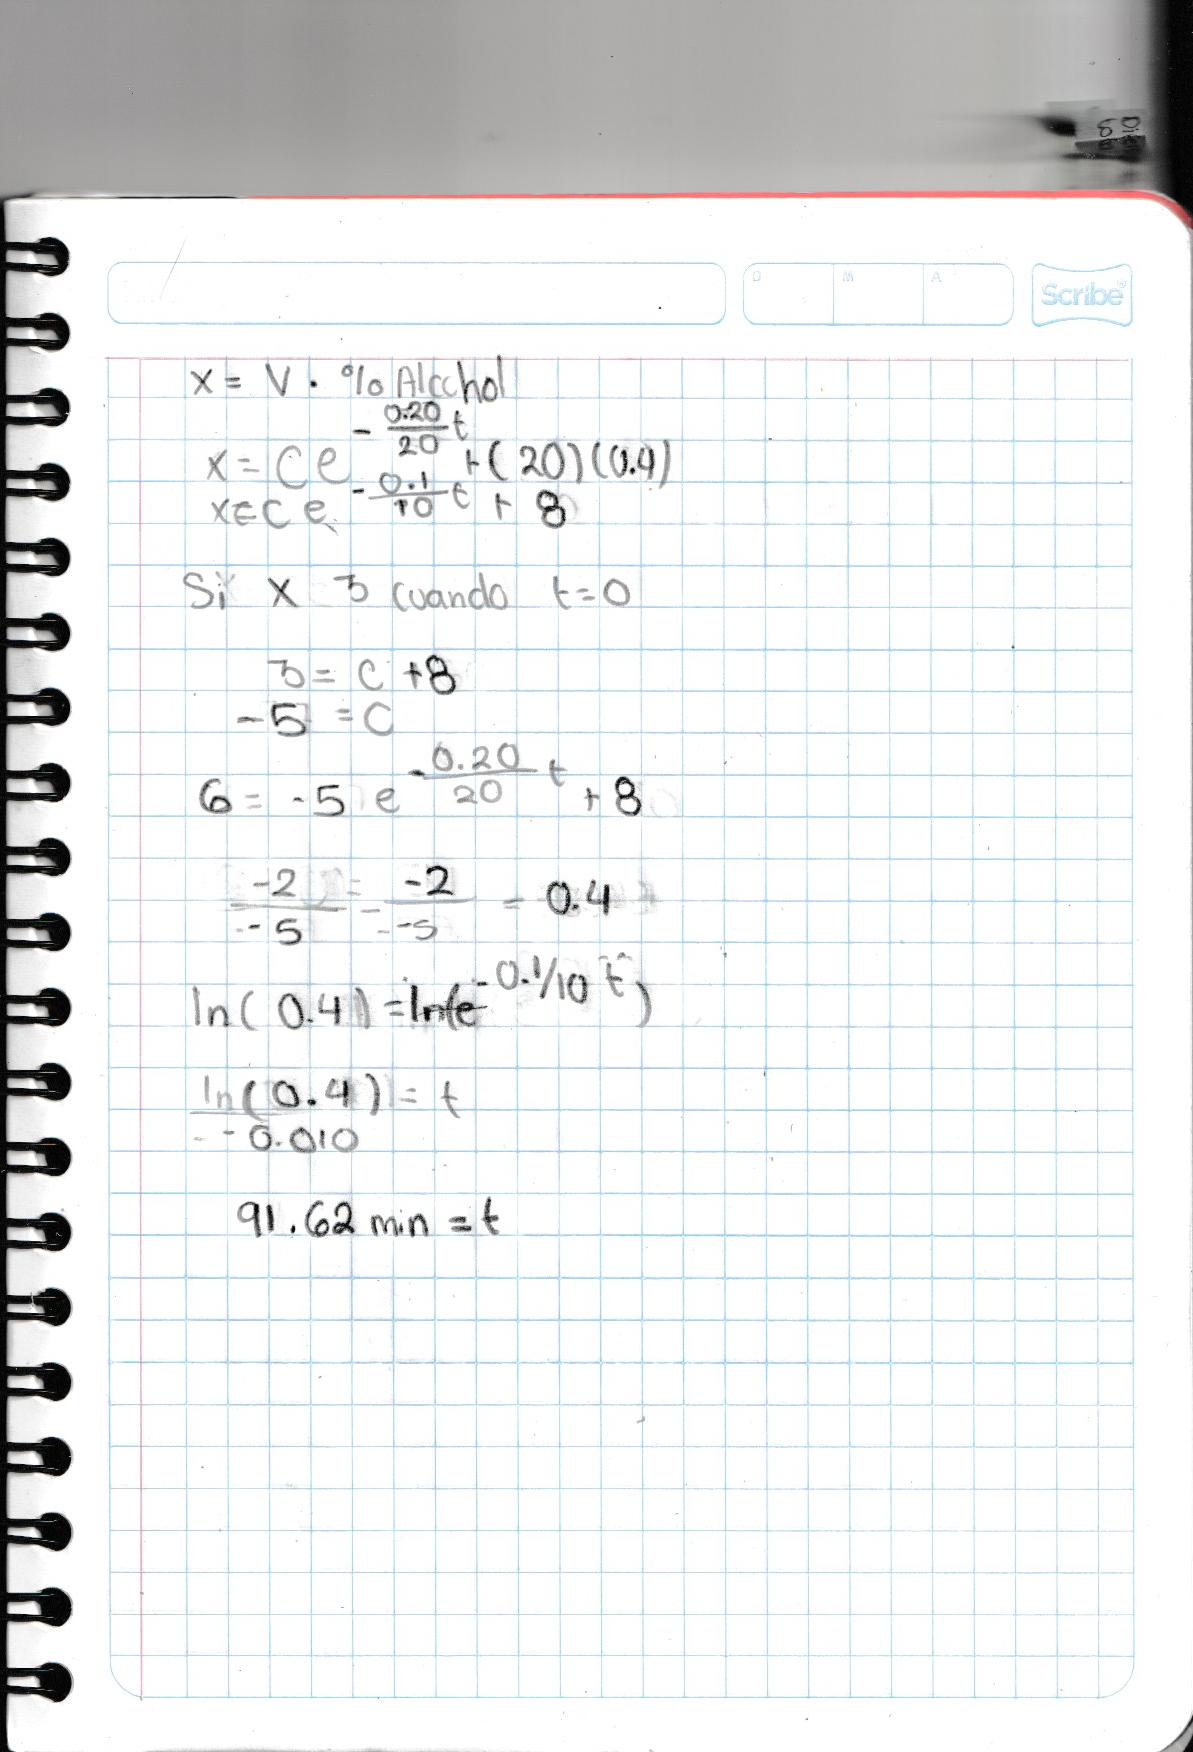 D M A Scribe®
x = V · % Alcohol
x = C e^{-\frac{0.20}{20}t} + (20)(0.4)
x = C e^{-\frac{0.1}{10}t} + 8
Si x 3 cuando t=0
3 = C +8
-5 = C
6 = -5 e^{-\frac{0.20}{20}t} + 8
\frac{-2}{-5} = \frac{-2}{-5} = 0.4
ln(0.4) = ln(e^{-0.1/10 t})
\frac{ln(0.4)}{-0.010} = t
91.62 min = t